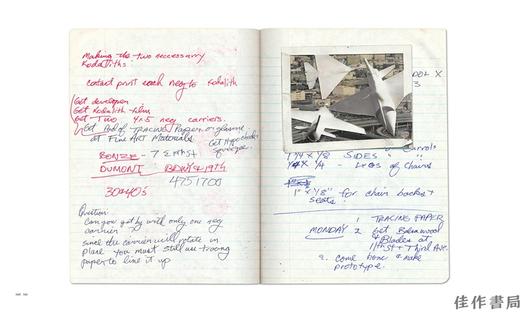 Making the two necessary
Kodaliths:
contact print each neg to Kodalith
Get developer
Get Kodalith film
Get Two 4x5 neg carriers.
Get Pad of Tracing Paper or glassine
at Fine Art Materials
Get
squeegee
RENZE - 7 E
DUMONT BDWY &
4751700
30-40's
Question:
Can you get by with only one neg
carrier -
since the carrier will rotate in
place you must still use tracing
paper to line it up
X
3
or Carrols
1/8 SIDES " "
1/4 - Legs of Chairs
1" x 1/8" for chair backs +
seats!
1 TRACING PAPER
MONDAY 2 Get Balsawood
+ Blades at
11th St + Third Ave.
3. come home & make
prototype.
佳作書局